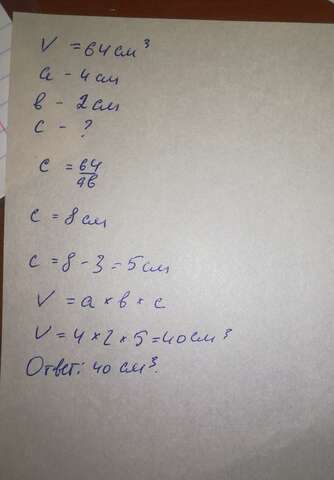 V = 64 см³
a - 4 см
в - 2 см
c - ?
c = 64/ав
c = 8 см
c = 8 - 3 = 5 см
V = a × в × c
V = 4 × 2 × 5 = 40 см³
Ответ: 40 см³.